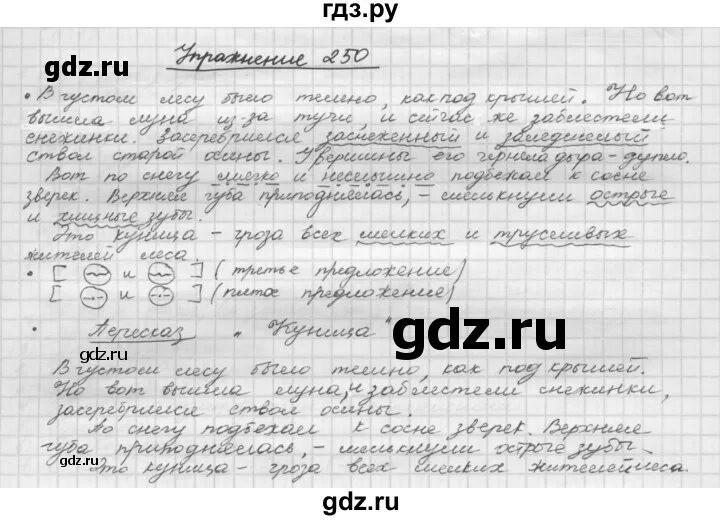 гдз.ру
Упражнение 250
• В густом лесу было темно, как под крышей. Но вот
вышла луна из-за тучи, и сейчас же заблестели
снежинки. Засеребрился заснеженный и заледенелый
ствол старой осины. У вершины его чернела дыра - дупло.
Вот по снегу мягко и неслышно подбежал к сосне
зверек. Верхняя губа приподнялась, - мелькнули острые
и хищные зубы.
Это куница - гроза всех мелких и трусливых
жителей леса.
• [ и ] (третье предложение)
[ и ] (пятое предложение)
• Пересказ „Куница“
В густом лесу было темно, как под крышей.
Но вот вышла луна, и заблестели снежинки,
засеребрился ствол осины.
По снегу подбежал к сосне зверек. Верхняя
губа приподнялась, - мелькнули острые зубы.
Это куница - гроза всех мелких жителей леса.
gdz.ru
gdz.ru
gdz.ru
gdz.ru
gdz.ru
gdz.ru
gdz.ru
gdz.ru
gdz.ru